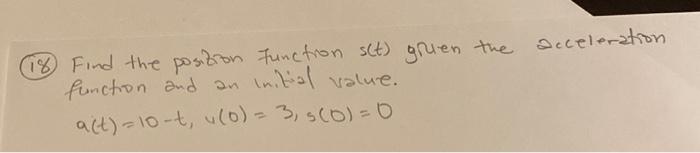 18 Find the position function s(t) given the acceleration
function and an initial value.
a(t)=10-t, v(0)=3, s(0)=0